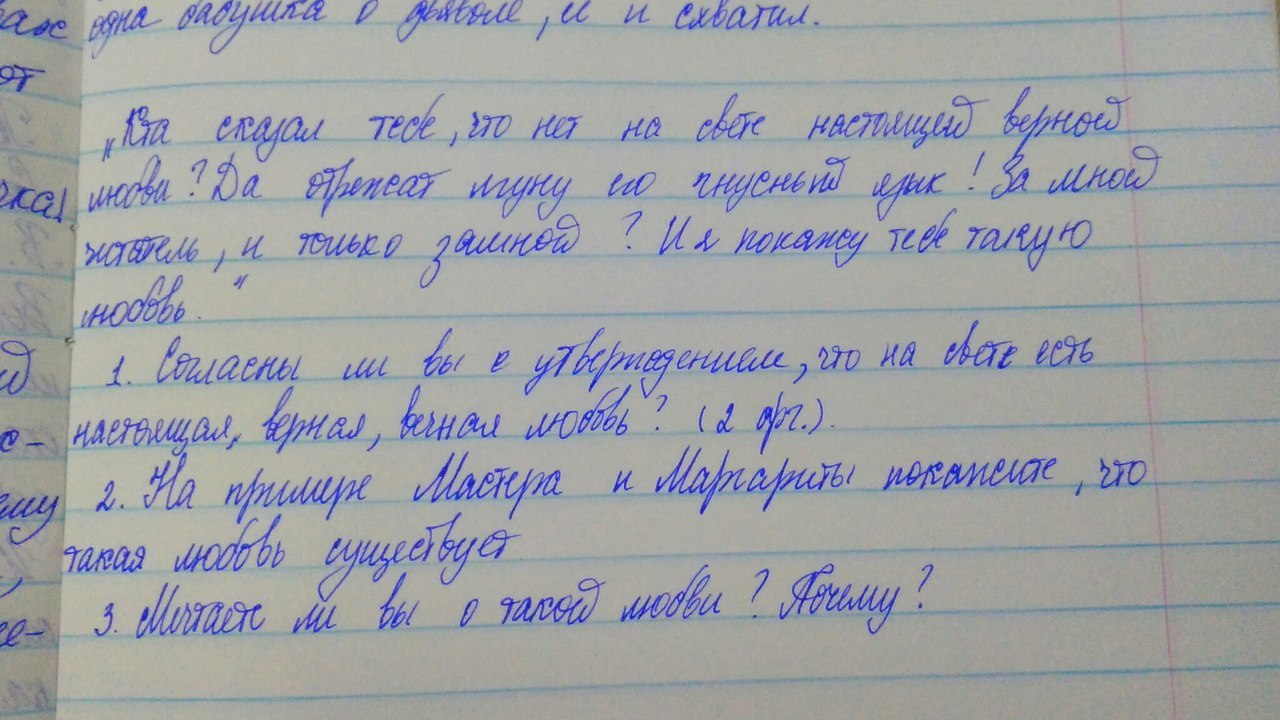 одна бабушка о дьяволе, и и схватил.
от
„Кто сказал тебе, что нет на свете настоящей верной
чка! любви? Да отрежат лгуну его гнусный язык! За мной
читатель, и только замной? И я покажу тебе такую
любовь."
1. Согласны ли вы с утверждением, что на свете есть
о- настоящая, верная, вечная любовь? (2 арг.).
ему 2. На примере Мастера и Маргариты покажите, что
такая любовь существует
3. Мечтаете ли вы о такой любви? Почему?